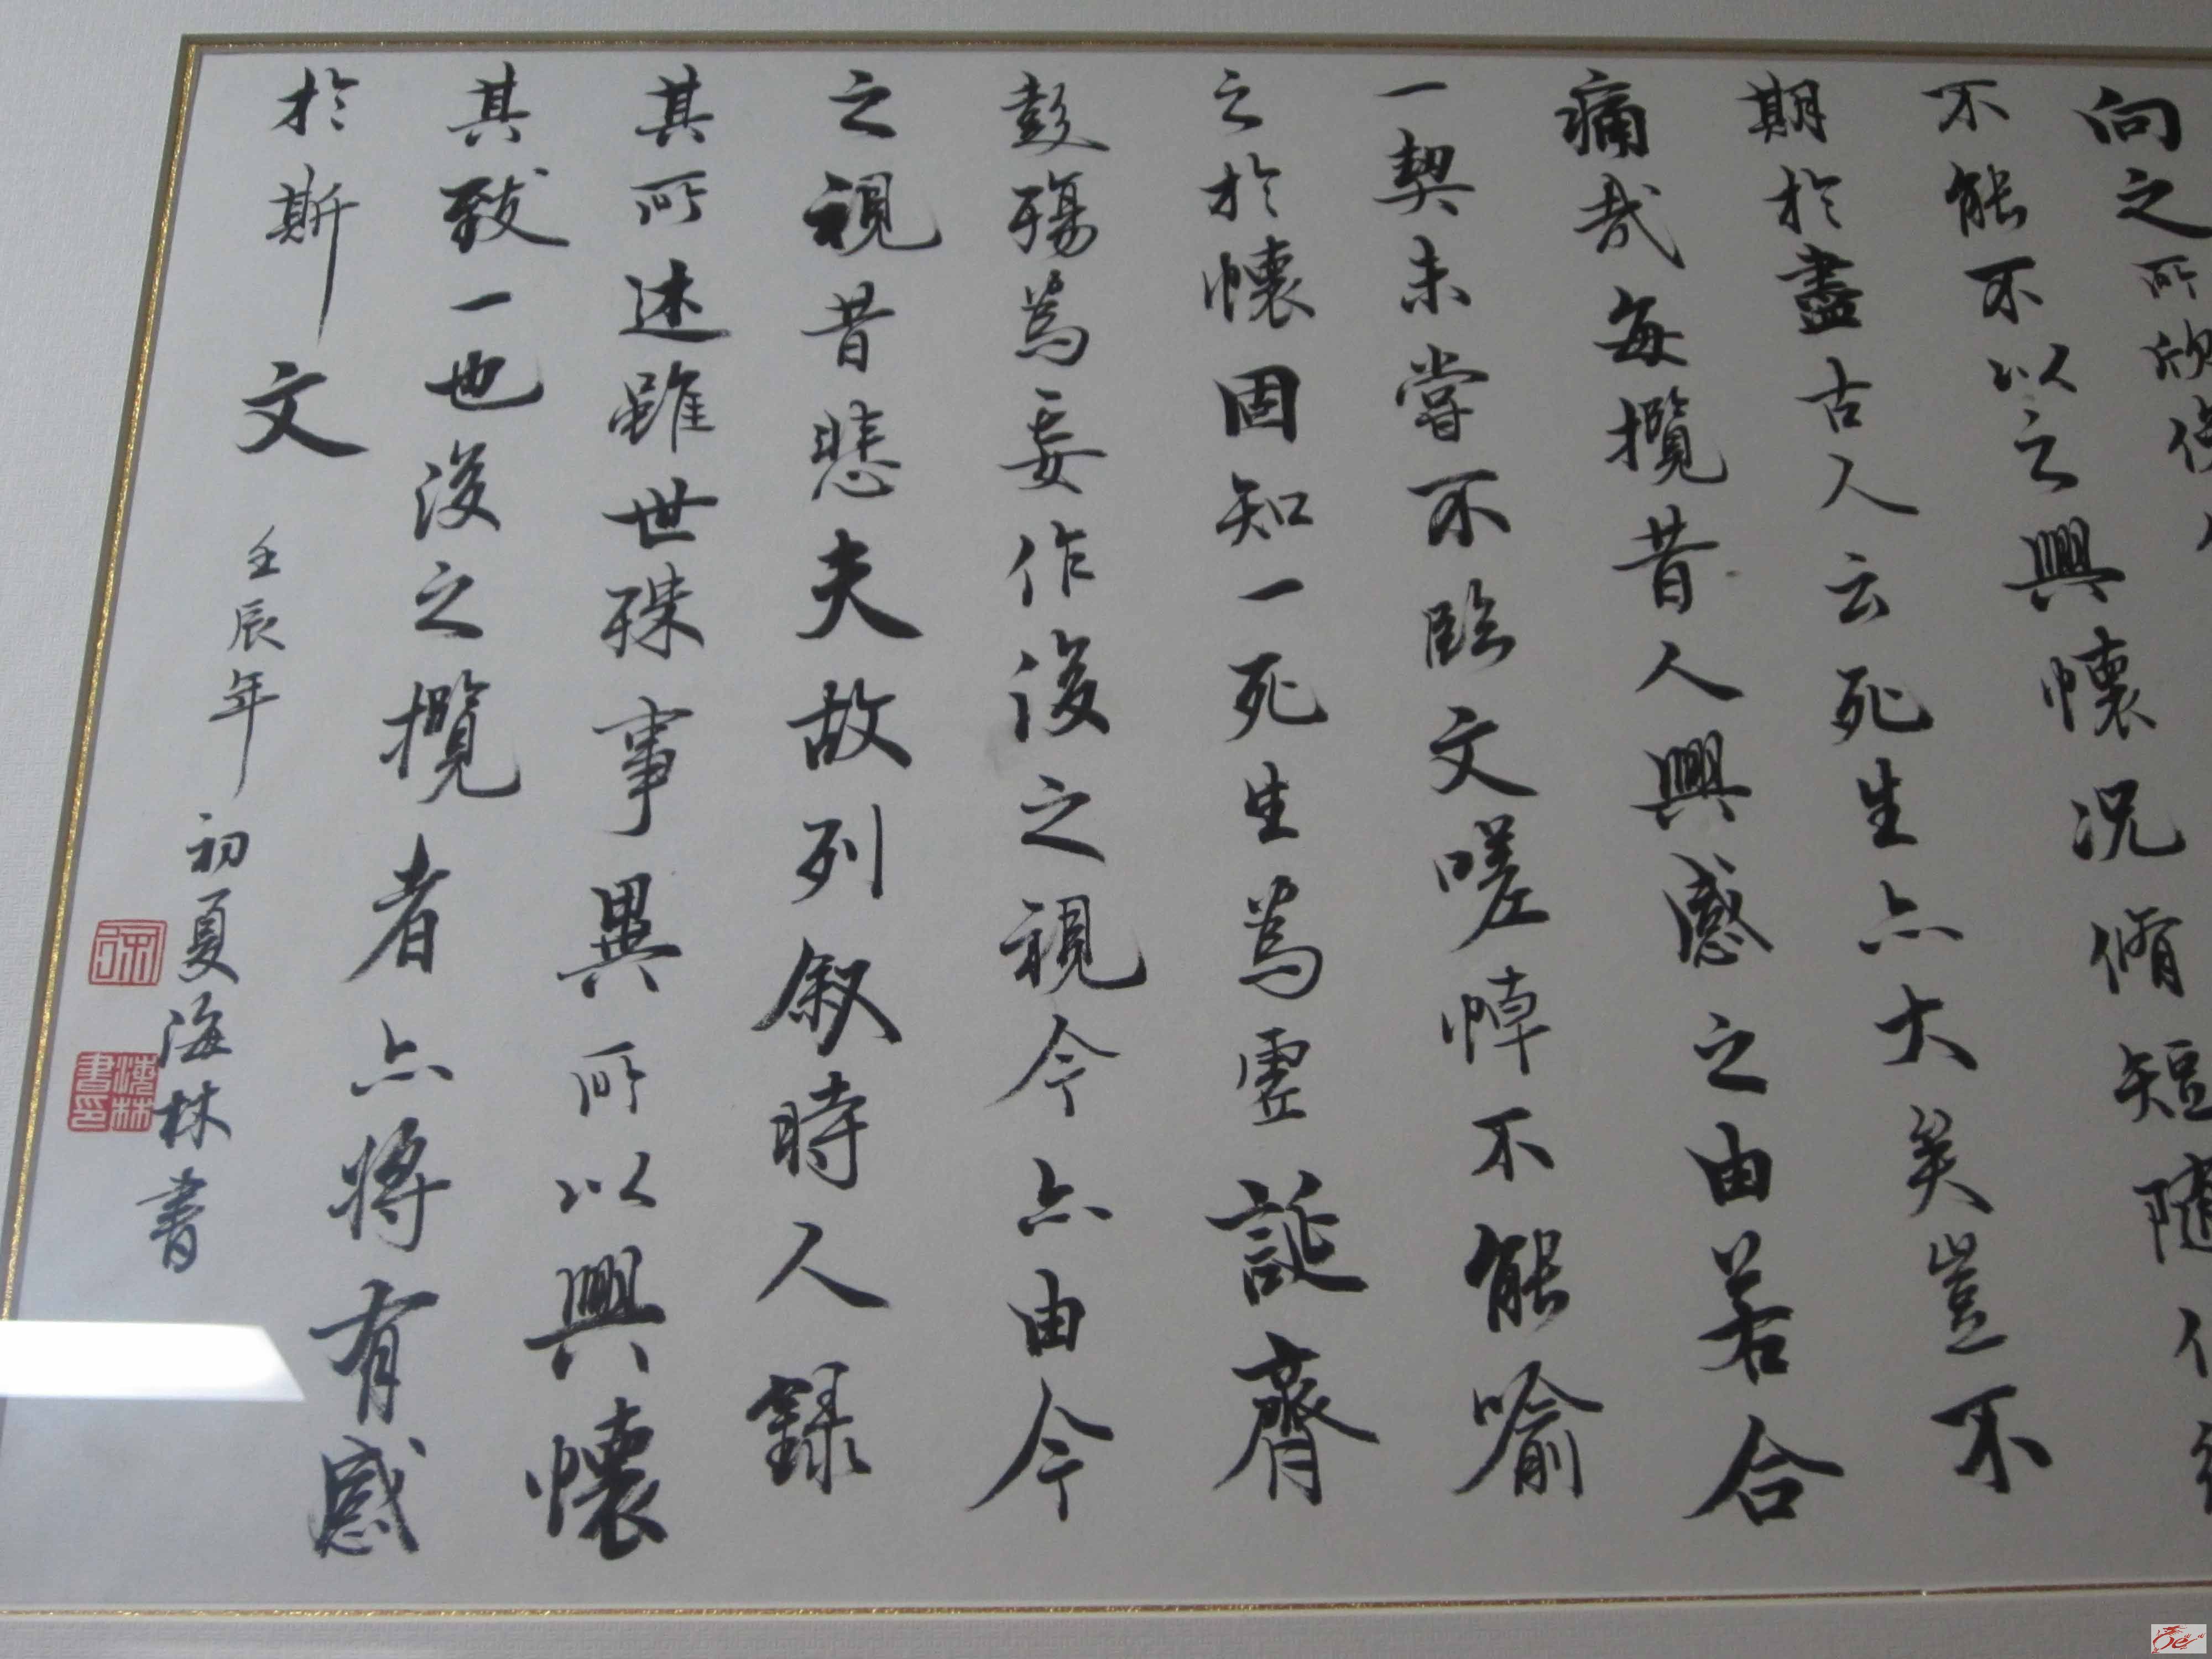 向之所欣俛
不能不以之興懷況脩短隨化
期於盡古人云死生亦大矣豈不
痛哉每攬昔人興感之由若合
一契未嘗不臨文嗟悼不能喻
之於懷固知一死生為虛誕齊
彭殤為妄作後之視今亦由今
之視昔悲夫故列敘時人錄
其所述雖世殊事異所以興懷
其致一也後之攬者亦將有感
於斯文
壬辰年初夏海林書
海林書印